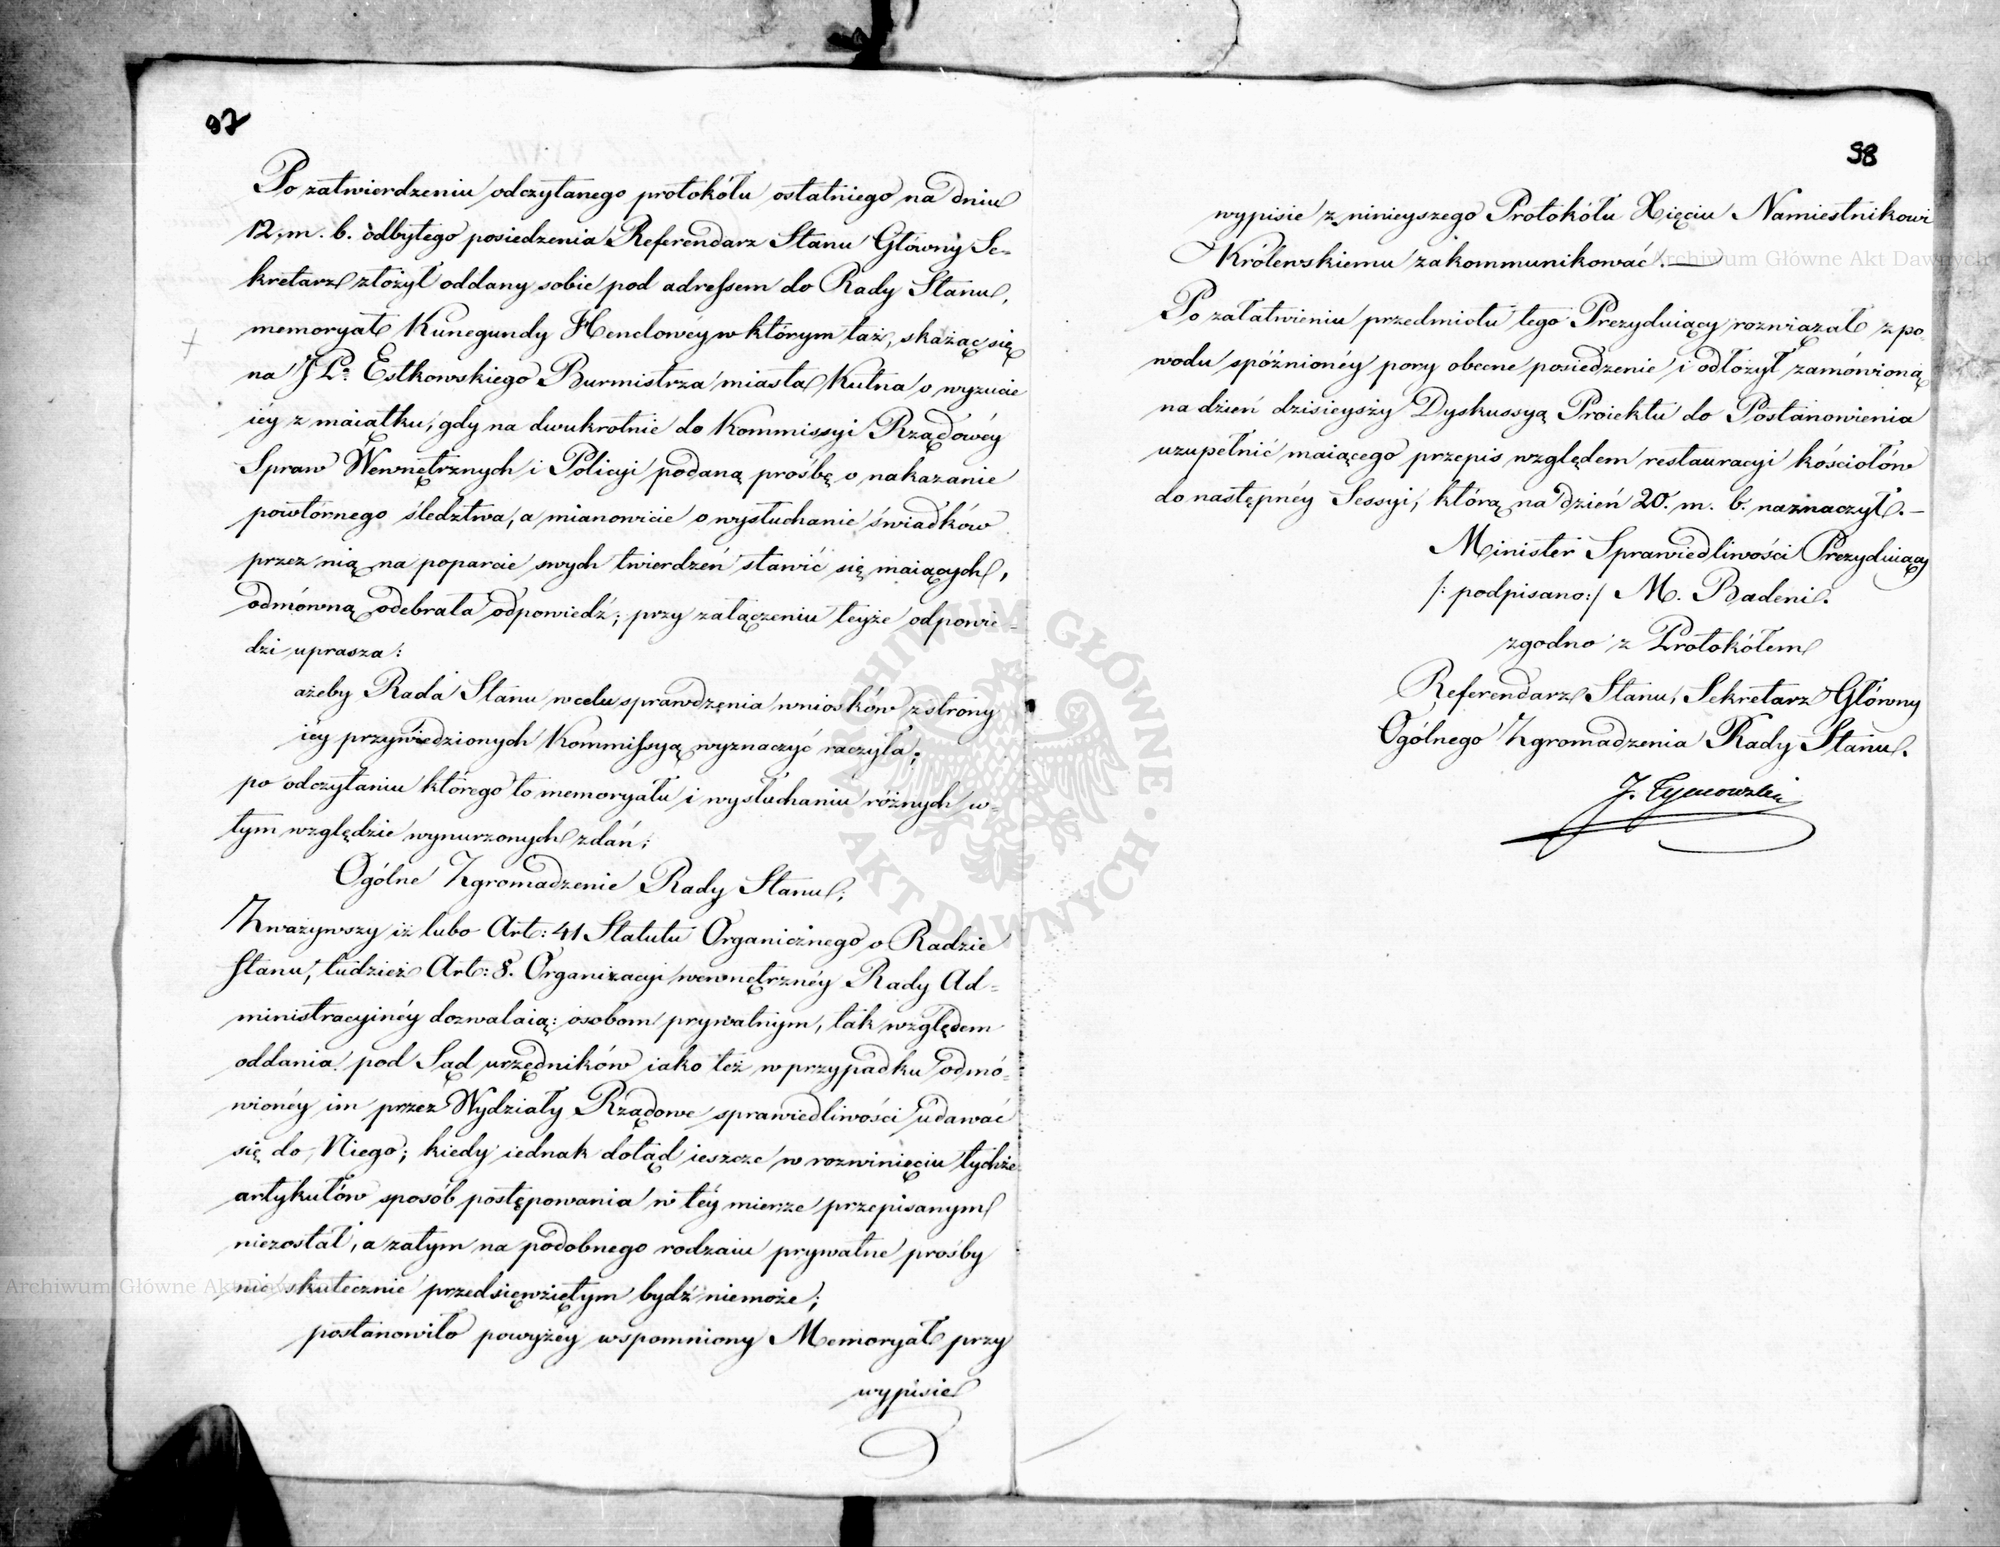 97
Po zatwierdzeniu odczytanego protokółu ostatniego na dniu
12. m. b. odbytego posiedzenia Referendarz Stanu Główny Se-
kretarz złożył oddany sobie pod adressem do Rady Stanu,
memoryał Kunegundy Henclowéy w którym taż, skarząc się
na J P. Estkowskiego Burmistrza miasta Kutna o wyzucie
iéy z maiątku, gdy na dwukrotnie do Kommissyi Rządowéy
Spraw Wewnętrznych i Policyi podaną prośbę o nakazanie
powtórnego śledztwa, a mianowicie o wysłuchanie świadków
przez nią na poparcie swych twierdzeń stawić się maiących,
odmówną odebrała odpowiedź; przy załączeniu teyże odpowie-
dzi uprasza:
ażeby Rada Stanu w celu sprawdzenia wniosków z strony
iéy przywiedzionych Kommissyą wyznaczyć raczyła;
po odczytaniu którego to memoryału i wysłuchaniu różnych w-
tym względzie wynurzonych zdań;
Ogólne Zgromadzenie Rady Stanu;
Zważywszy iż lubo Art: 41 Statutu Organicznego o Radzie
Stanu, tudzież Art: 8. Organizacyi wewnętrznéy Rady Ad-
ministracyinéy dozwalaią: osobom prywatnym, tak względem
oddania pod Sąd urzędników iako też w przypadku odmó-
wionéy im przez Wydziały Rządowe sprawiedliwości udawać
się do Niego; kiedy iednak dotąd ieszcze w rozwinięciu tychże
artykułów sposób postępowania w téy mierze przepisanym
niezostał, a zatym na podobnego rodzaiu prywatne prośby
nic skutecznie przedsięwziętym bydź niemoże;
postanowiło powyżéy wspomniony Memoryał przy
wypisie
98
wypisie z ninieyszego Protokółu Xięciu Namiestnikowi
Królewskiemu zakommunikować. —
Po załatwieniu przedmiotu tego Prezyduiący rozwiązał z po-
wodu spóźnionéy pory obecne posiedzenie i odłożył zamówioną
na dzień dzisieyszy Dyskussyą Proiektu do Postanowienia
uzupełnić maiącego przepis względem restauracyi kościołów
do następnéy Sessyi, którą na dzień 20. m. b. naznaczył. —
Minister Sprawiedliwości Prezyduiący
/: podpisano:/ M. Badeni.
zgodno z Protokółem
Referendarz Stanu, Sekretarz Główny
Ogólnego Zgromadzenia Rady Stanu.
J. Tymowski
Archiwum Główne Akt Dawnych
Archiwum Główne Akt Dawnych
ARCHIWUM GŁÓWNE · AKT DAWNYCH ·